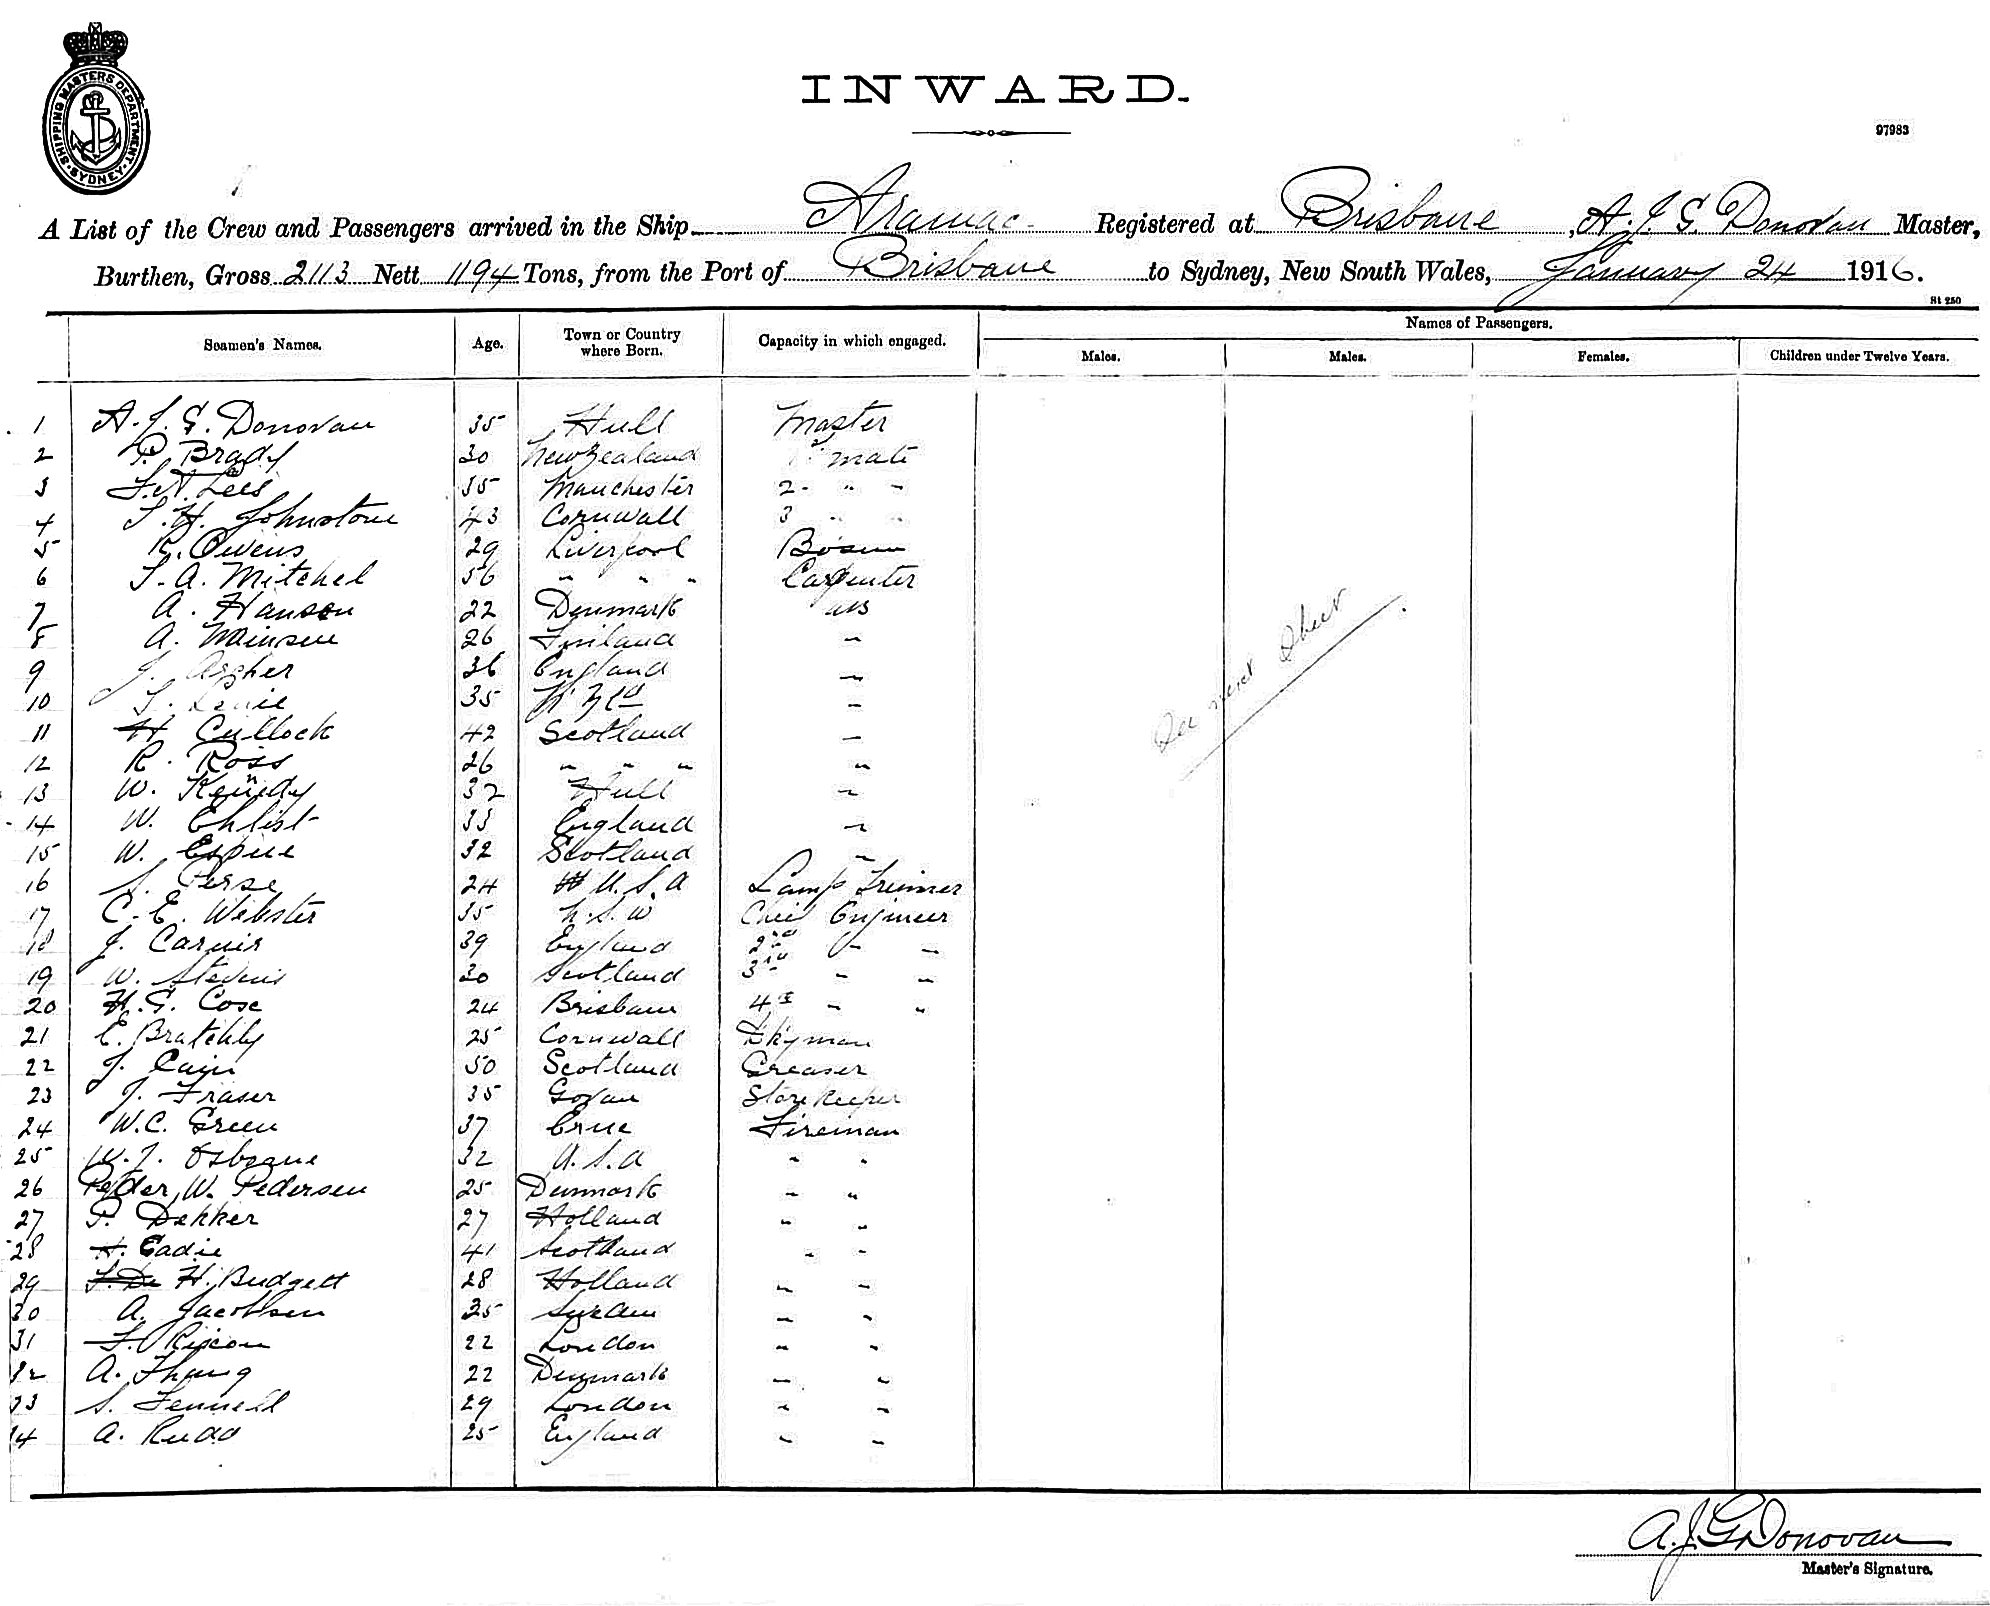 SHIPPING MASTERS DEPARTMENT · SYDNEY ·
INWARD.
97983
A List of the Crew and Passengers arrived in the Ship Aramac Registered at Brisbane, A. J. G. Donovan Master,
Burthen, Gross 2113 Nett 1194 Tons, from the Port of Brisbane to Sydney, New South Wales, January 24 1916.
St 250
Seamen's Names. Age. Town or Country where Born. Capacity in which engaged. Names of Passengers.
Males. Males. Females. Children under Twelve Years.
1 A. J. G. Donovan 35 Hull Master
2 P. Brady 30 New Zealand mate
3 Lees 35 Manchester 2 " "
4 Johnstone 43 Cornwall 3 " "
5 R. Owens 29 Liverpool Bosun
6 A. Mitchel 56 " " " Carpenter
7 A. Hanson 22 Denmark AB
8 A. 26 Finland "
9 J. Ascher 36 England "
10 35 N Zld "
11 H Cullock 42 Scotland "
12 R. Ross 26 " " " "
13 W. Kennedy 32 Hull "
14 W. Ehlist 33 England "
15 W. Espie 32 Scotland "
16 Perse 24 U. S. A Lamp Trimmer
17 C. E. Webster 35 N. S. W Chief Engineer
18 J. 39 England 2nd " "
19 W. Stevens 30 Scotland 3rd " "
20 H. G. Cose 24 Brisbane 4th " "
21 E. Bratchly 25 Cornwall Dkyman
22 J. Cain 50 Scotland Greaser
23 J. Fraser 35 Govan Storekeeper
24 W. C. Green 37 Fireman
25 W. J. Osborne 32 U. S. A " "
26 Peder W. Pedersen 25 Denmark " "
27 P. Dekker 27 Holland " "
28 H. Eadie 41 Scotland " "
29 H. Budgett 28 Holland " "
30 A. Jacobsen 35 Sweden " "
31 Rixon 22 London " "
32 A. Thang 22 Denmark " "
33 S. Fennell 29 London " "
34 A. Rudd 25 England " "
See next Sheet
A. J. G. Donovan
Master's Signature.